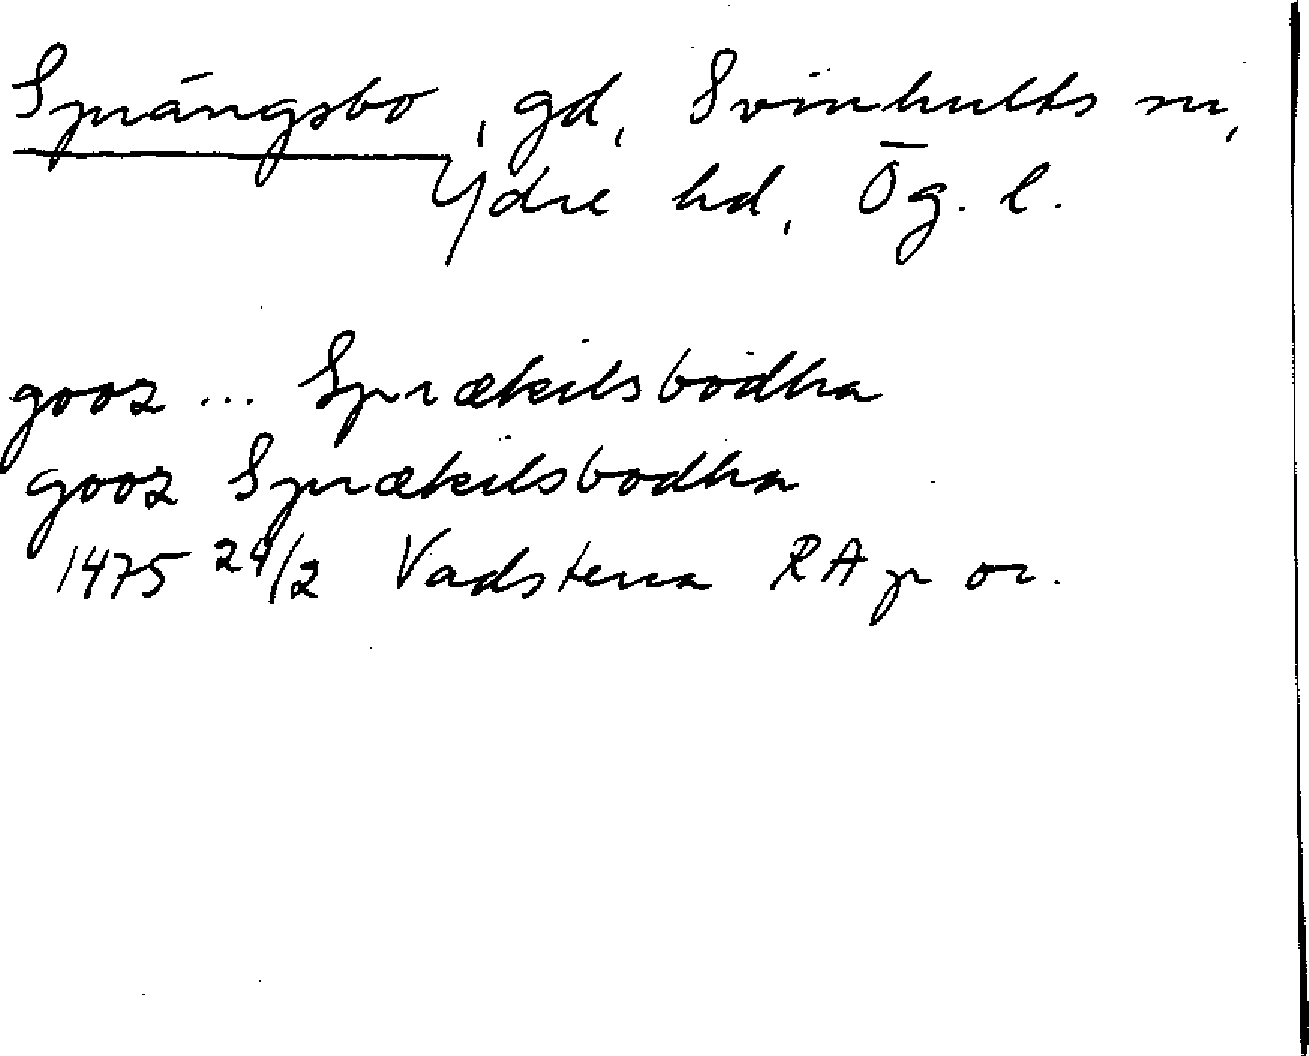 Sprängsbo, gd, Svinhults sn,
Ydre hd, Ög. l.
gooz ... Sprækilsbodha
gooz Sprækilsbodha
1475 24/2 Vadstena RA p or.